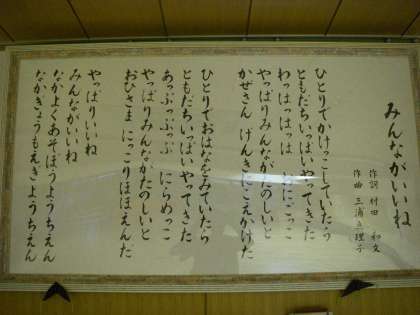 みんながいいね
作詞 村田 和文
作曲 三浦 理子
ひとりでかけっこしていたら
ともだちいっぱいやってきた
わっはっはっは おにごっこ
やっぱりみんながたのしいと
かぜさん げんきにこえかけた
ひとりでおはなをみていたら
ともだちいっぱいやってきた
あっぷっぷっぷ にらめっこ
やっぱりみんながたのしいと
おひさま にっこりほほえんだ
やっぱりいいね
みんながいいね
なかよくあそぼうようちえん
なかぎょうもえぎようちえん